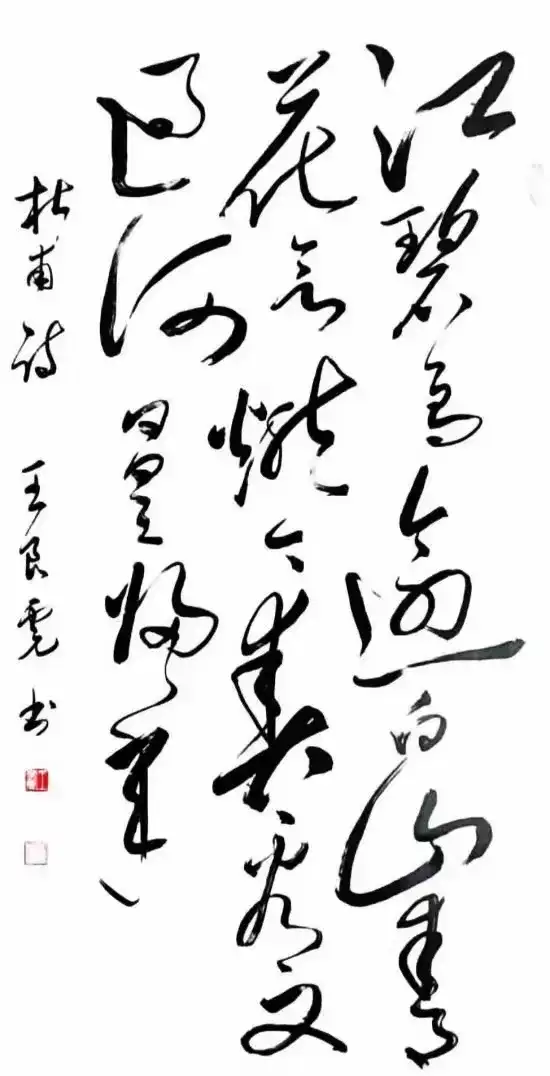 江碧鳥逾白山青
花欲燃今春看又
過何日是歸年
杜甫诗 王良虎书